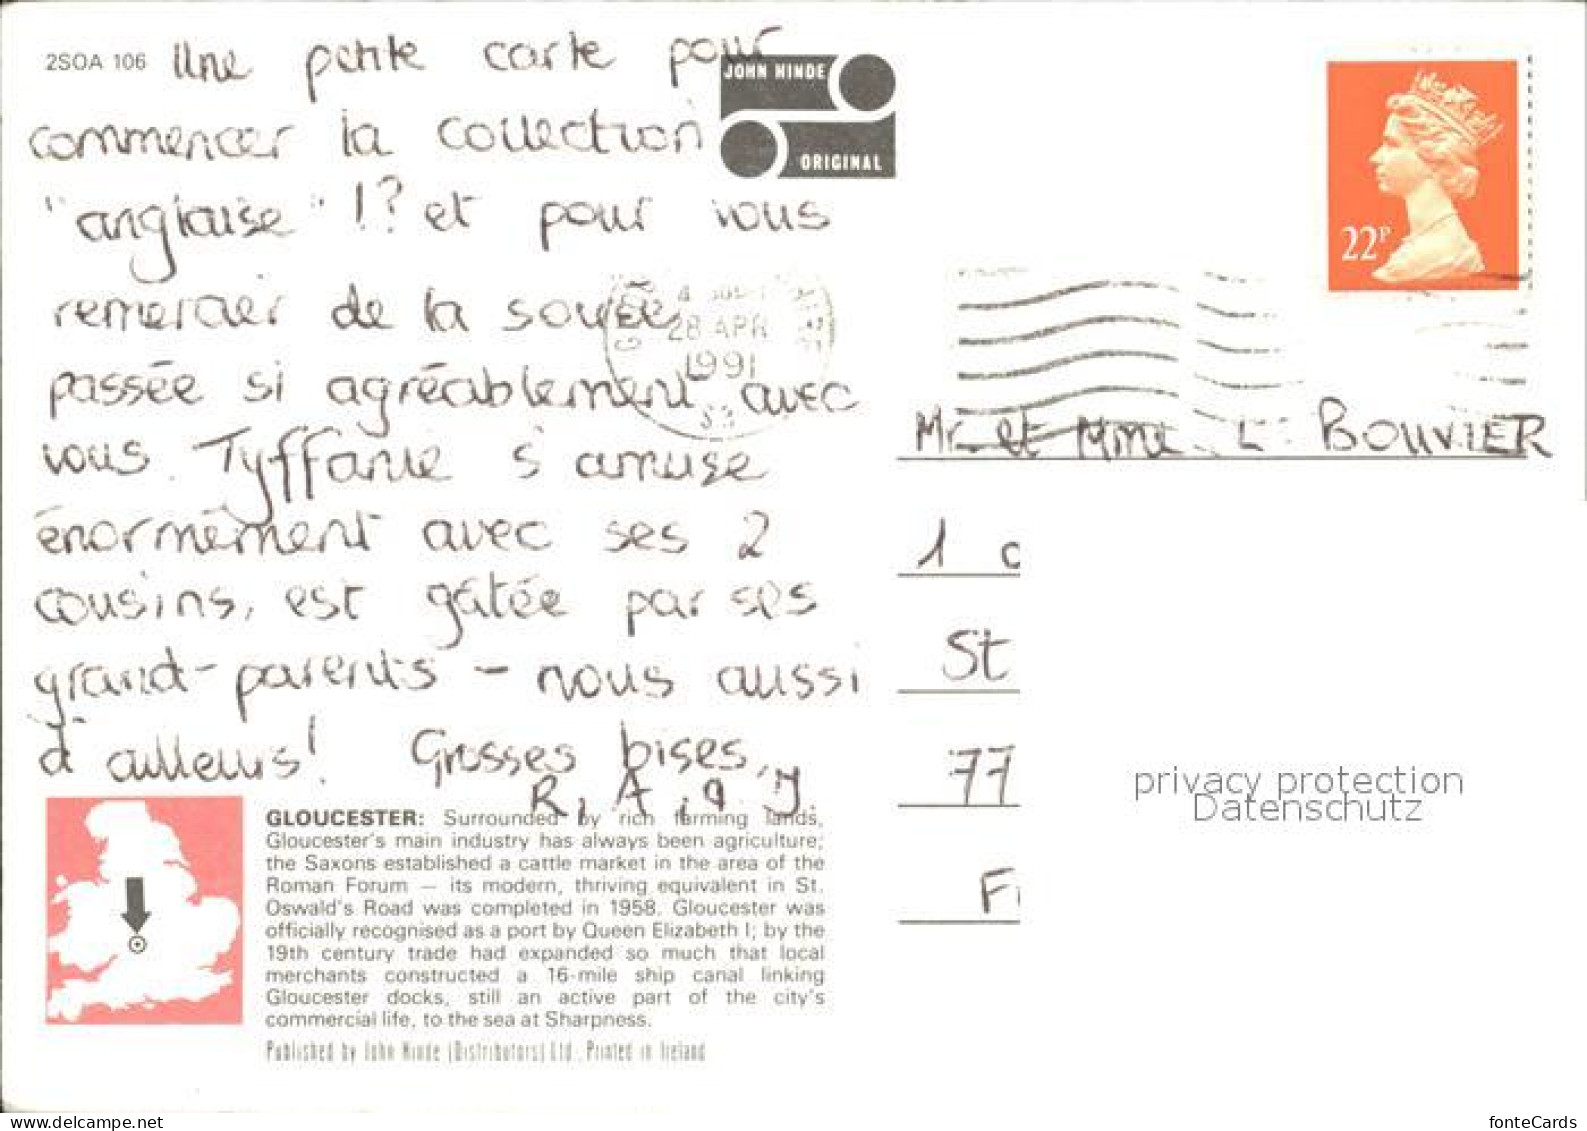 2SOA 106
Une petite carte pour
commencer la collection
"anglaise" !? et pour vous
remercier de la soirée
passée si agréablement avec
vous. Tyffanie s'amuse
énormément avec ses 2
cousins, est gâtée par ses
grand-parents - nous aussi
d'ailleurs! Grosses bises,
R, A, J.
JOHN HINDE
ORIGINAL
22P
28 APR
1991
Mr et Mme L. BOUVIER
1
St
77
privacy protection
Datenschutz
GLOUCESTER: Surrounded by rich farming lands,
Gloucester's main industry has always been agriculture;
the Saxons established a cattle market in the area of the
Roman Forum — its modern, thriving equivalent in St.
Oswald's Road was completed in 1958. Gloucester was
officially recognised as a port by Queen Elizabeth I; by the
19th century trade had expanded so much that local
merchants constructed a 16-mile ship canal linking
Gloucester docks, still an active part of the city's
commercial life, to the sea at Sharpness.
Published by John Hinde (Distributors) Ltd., Printed in Ireland
www.delcampe.net
fonteCards